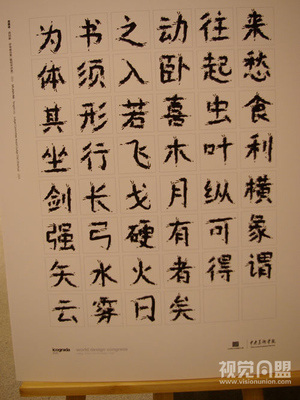 为书之动往来
体须入卧起愁
其形若喜虫食
坐行飞木叶利
剑长戈月纵横
强弓硬有可象
矢水火者得谓
云雾日矣
icograda world design congress
中央美术学院
视觉同盟
www.visionunion.com